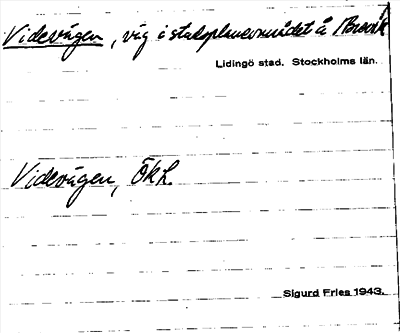 Videvägen, väg i stadsplaneområdet å Brevik
Lidingö stad. Stockholms län.
Videvägen, Ök L.
Sigurd Fries 1943.